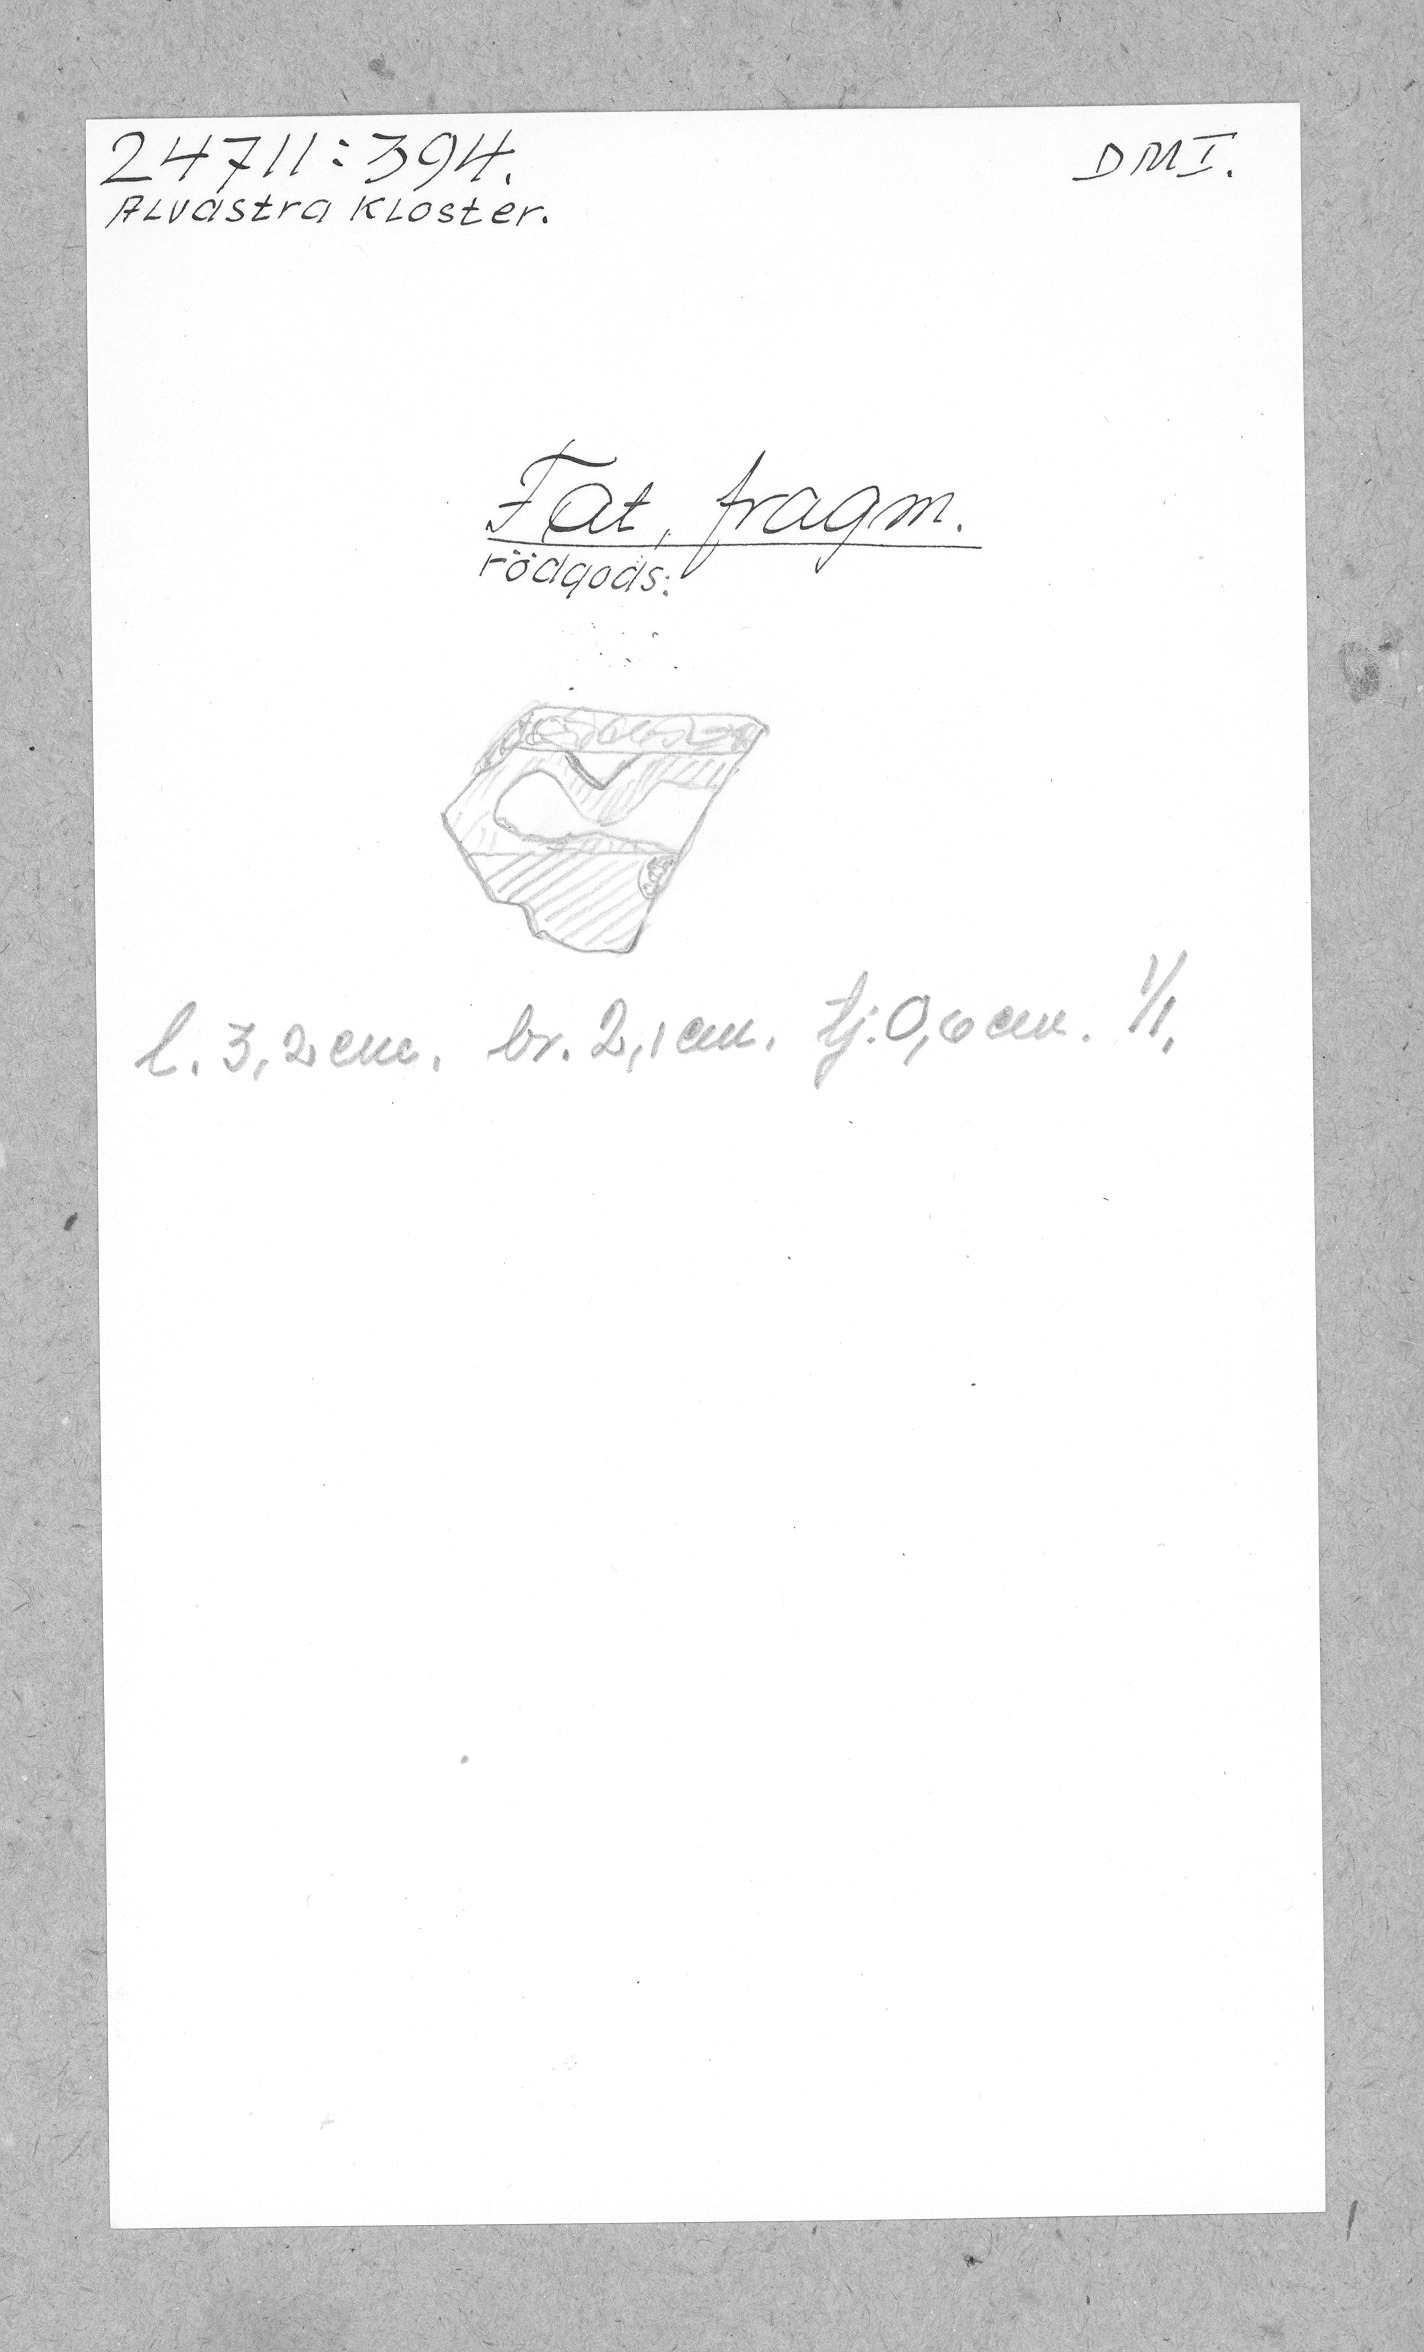 24711:394.
DMI.
Alvastra Kloster.
Fat, fragm.
rödgods:
l. 3,2 cm. br. 2,1 cm. tj. 0,6 cm. 1/1.